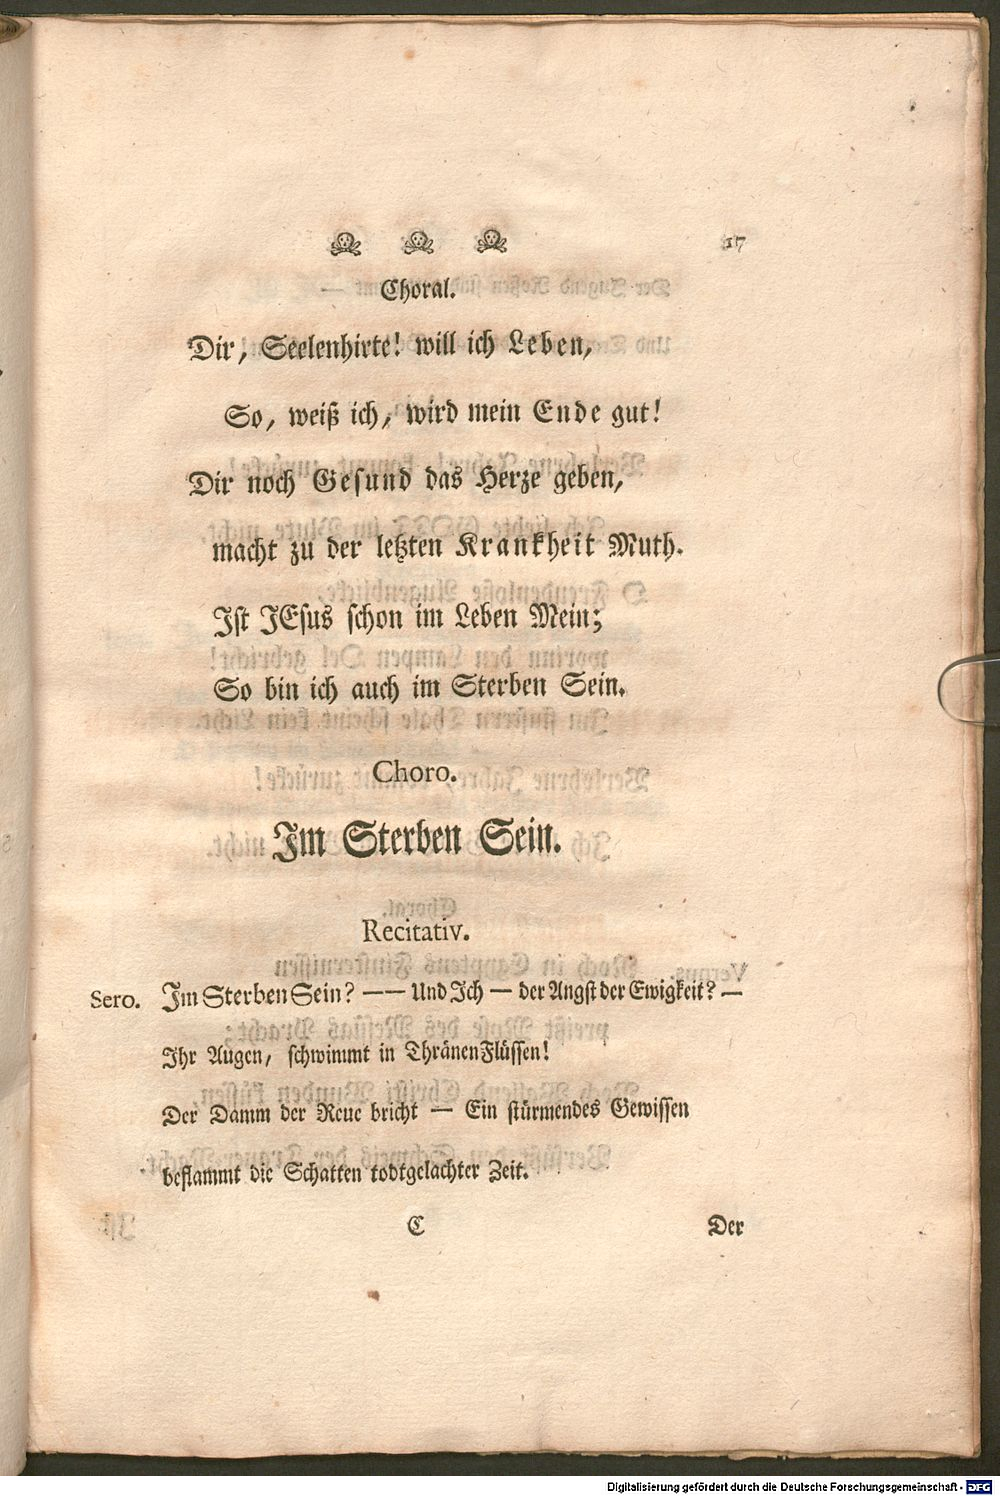 17
Choral.
Dir, Seelenhirte! will ich Leben,
So, weiß ich, wird mein Ende gut!
Dir noch Gesund das Herze geben,
macht zu der letzten Krankheit Muth.
Ist JEsus schon im Leben Mein;
So bin ich auch im Sterben Sein.
Choro.
Im Sterben Sein.
Recitativ.
Sero. Im Sterben Sein? — — Und Ich — der Angst der Ewigkeit? —
Ihr Augen, schwimmt in ThränenFlüssen!
Der Damm der Reue bricht — Ein stürmendes Gewissen
beflammt die Schatten todtgelachter Zeit.
C Der
Digitalisierung gefördert durch die Deutsche Forschungsgemeinschaft - DFG